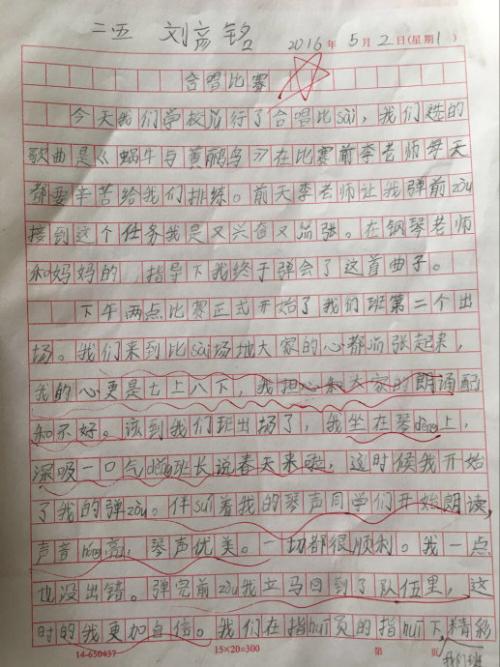 二五 刘彦铭
2016年5月2日(星期1)
合唱比赛
今天我们学校举行了合唱比sài,我们选的
歌曲是《蜗牛与黄鹂鸟》在比赛前李老师每天
都要辛苦给我们排练。前天李老师让我弹前zòu
接到这个任务我是又兴奋又紧张。在钢琴老师
和妈妈的 指导下我终于弹会了这首曲子。
下午两点比赛正式开始了我们班第二个出
场。我们来到比sài场地大家的心都紧张起来,
我的心更是七上八下,我担心和大家的朗诵配
和不好。该到我们班出场了,我坐在琴dèng上,
深吸一口气 班长说春天来啦,这时候我开始
了我的弹zòu。伴suí着我的琴声同学们开始朗读,
声音 亮,琴声优美。一切都很顺利。我一点
也没出错。弹完前zòu我立马回到了队伍里,这
时的我更加自信。我们在指huī员的指huī下,精彩
14-650437 15×20=300 第 页 我们班